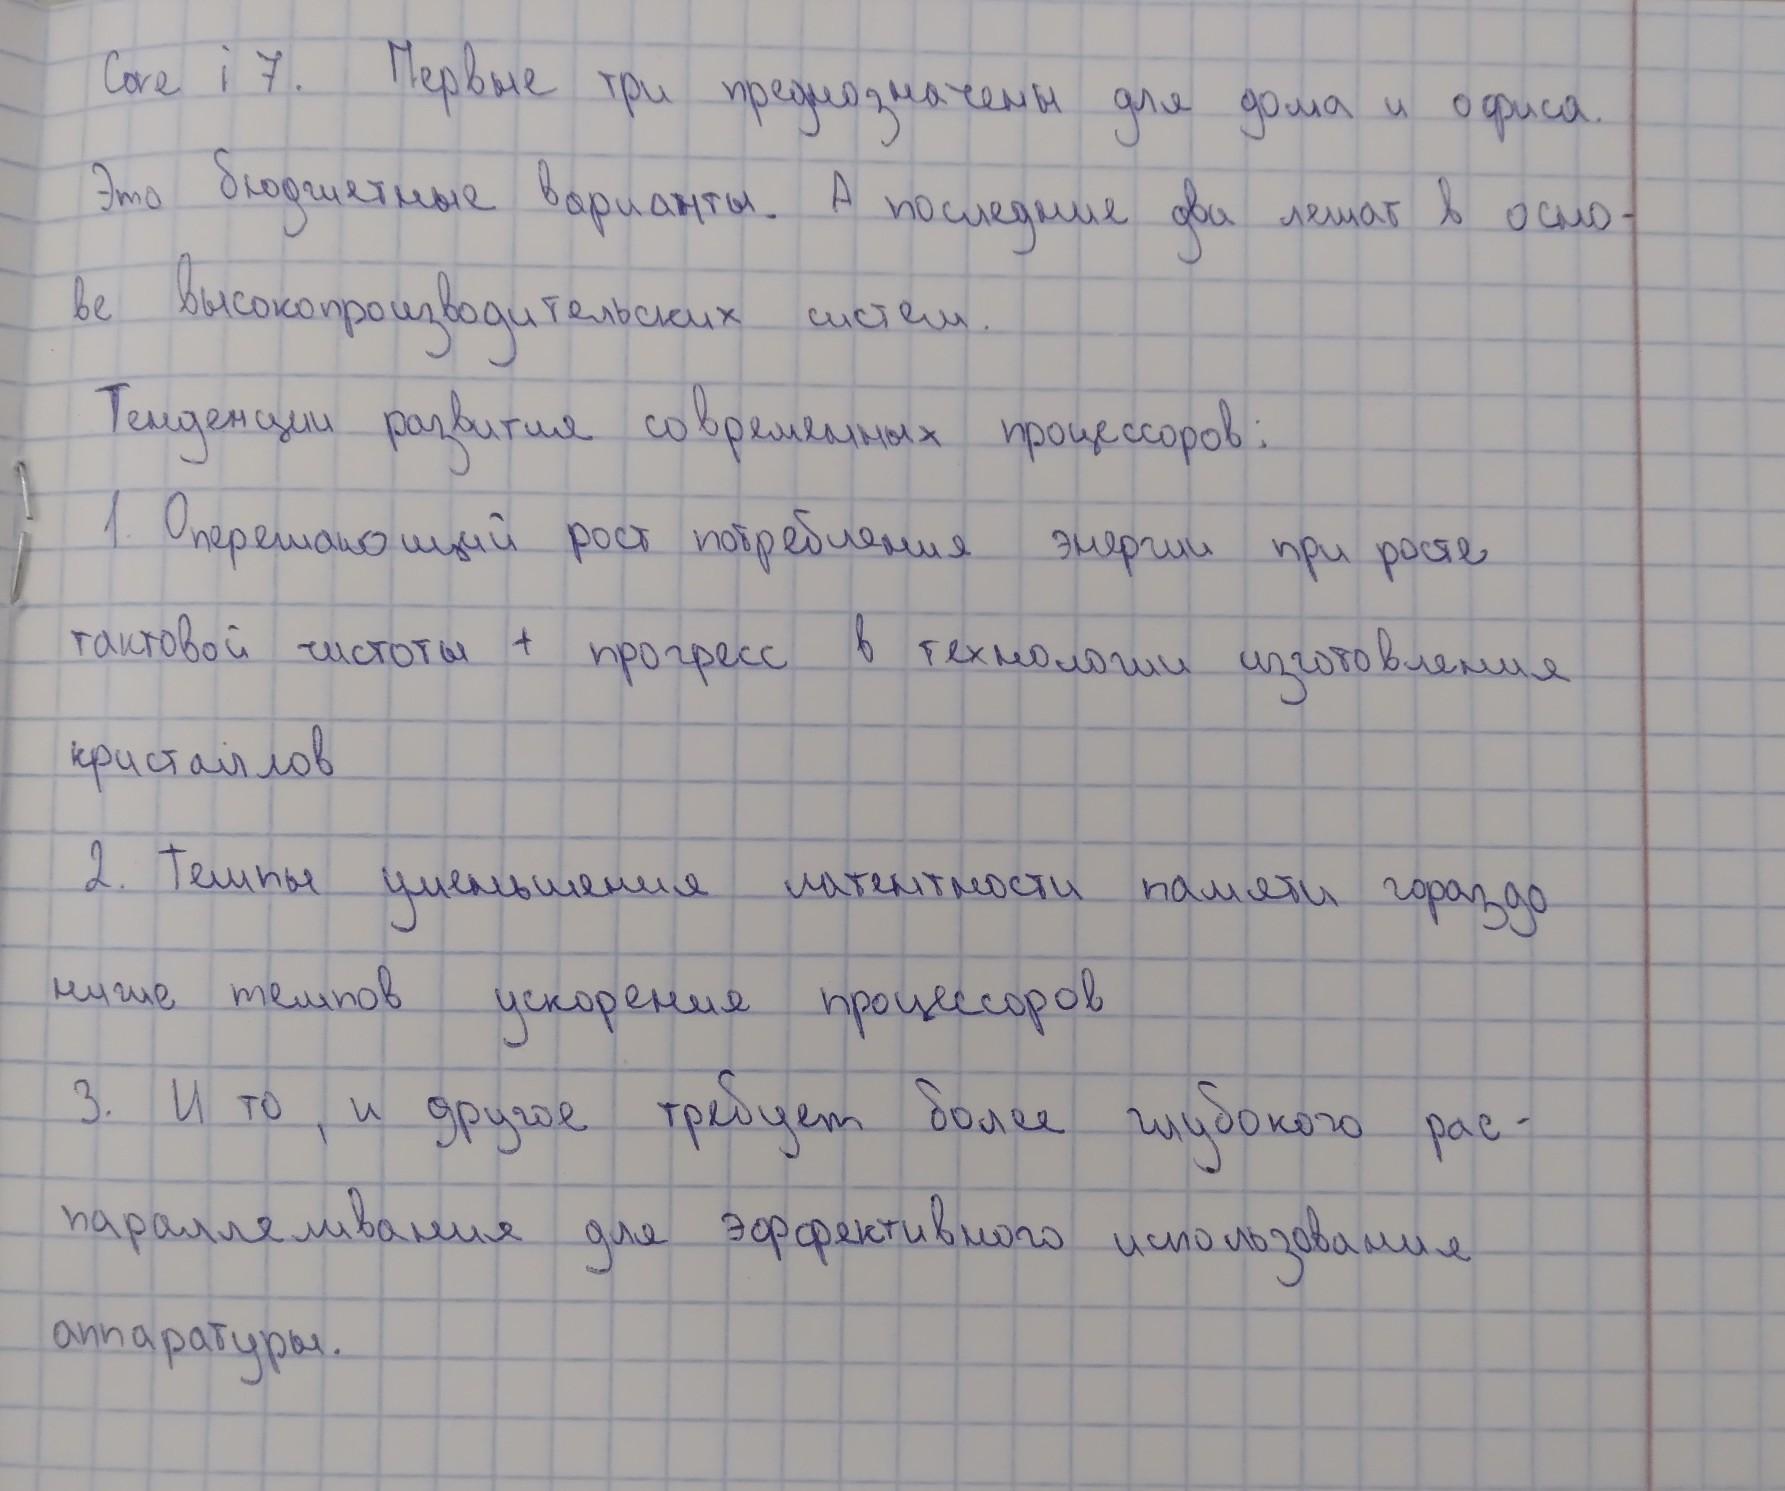 Core i 7. Первые три предназначены для дома и офиса.
Это бюджетные варианты. А последние два лежат в осно-
ве высокопроизводительских систем.
Тенденции развития современных процессоров:
1. Опережающий рост потребления энергии при росте
тактовой чистоты + прогресс в технологии изготовления
кристаллов
2. Темпы уменьшения латентности памяти гораздо
ниже темпов ускорения процессоров
3. И то, и другое требует более глубокого рас-
параллеливания для эффективного использования
аппаратуры.